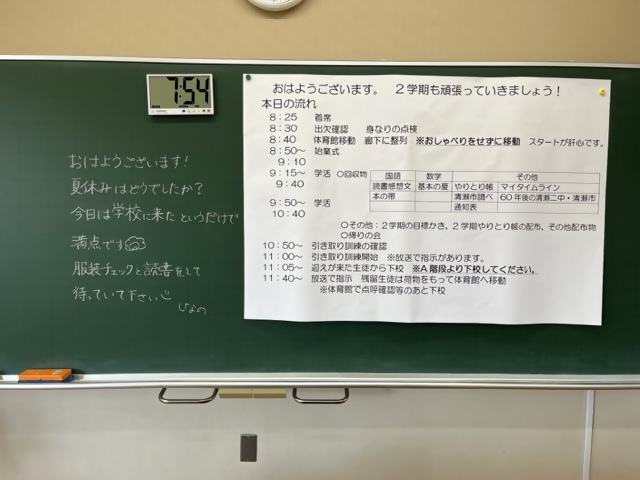 7:54
おはようございます!
夏休みはどうでしたか?
今日は学校に来たというだけで
満点です
服装チェックと読書をして
待っていて下さい
ひなの
おはようございます。 2学期も頑張っていきましょう!
本日の流れ
8:25 着席
8:30 出欠確認 身なりの点検
8:40 体育館移動 廊下に整列 ※おしゃべりをせずに移動 スタートが肝心です。
8:50~ 始業式
9:10
9:15~ 学活 ○回収物
9:40
国語 数学 その他
読書感想文 基本の夏 やりとり帳 マイタイムライン
本の帯 清瀬市調べ 60年後の清瀬二中・清瀬市
通知表
9:50~ 学活
10:40
○その他:2学期の目標かき、2学期やりとり帳の配布、その他配布物
○帰りの会
10:50~ 引き取り訓練の確認
11:00~ 引き取り訓練開始 ※放送で指示があります。
11:05~ 迎えが来た生徒から下校 ※A階段より下校してください。
11:40~ 放送で指示 残留生徒は荷物をもって体育館へ移動
※体育館で点呼確認等のあと下校